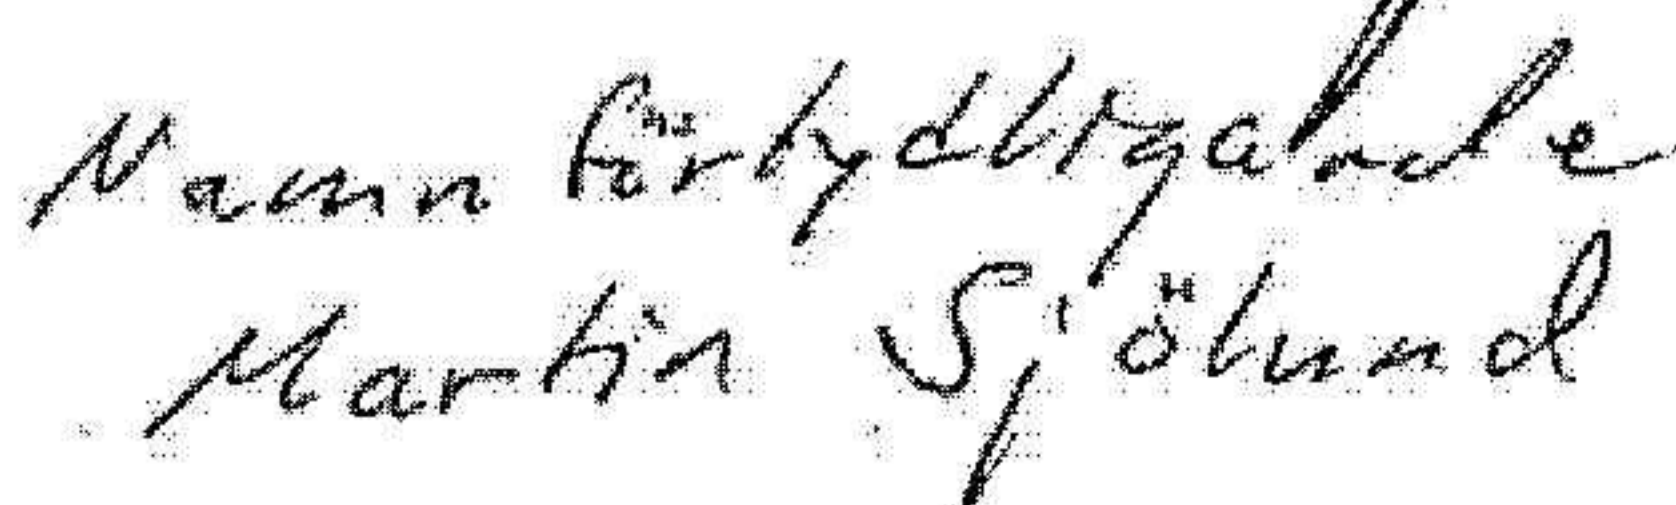 Namnförtydligande
Martin Sjölund